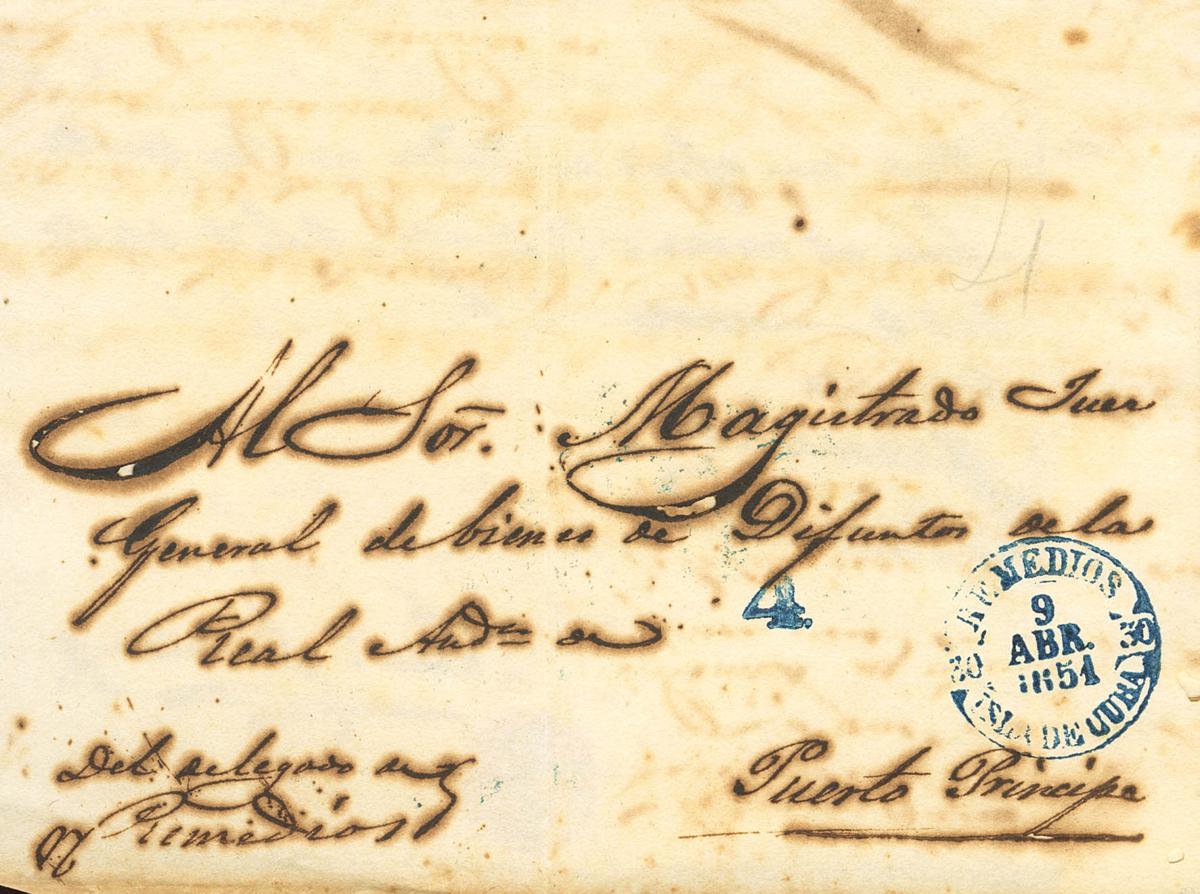 21
Al Sor. Magistrado Juez
General de bienes de Difuntos de la
Real Auda de
4.
REMEDIOS
9
ABR.
1851
30 30
ISLA DE CUBA
Del delegado en
Remedios
Puerto Principe